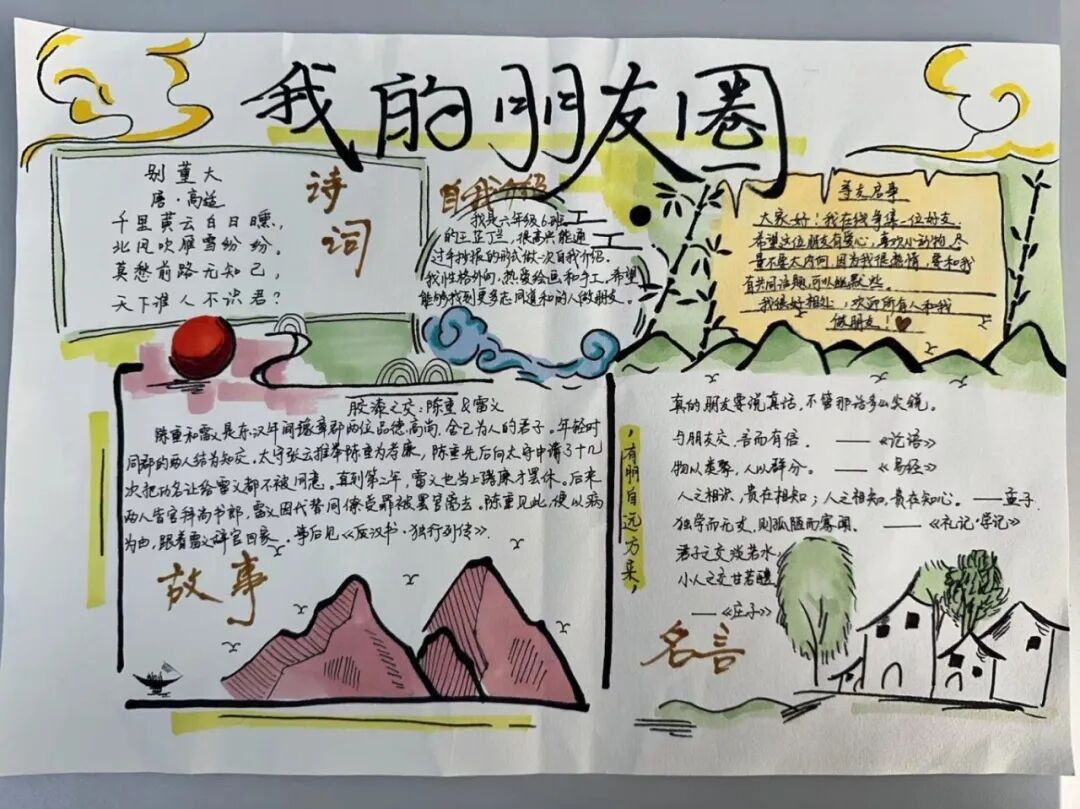 我的朋友圈
诗词
别董大
唐·高适
千里黄云白日曛,
北风吹雁雪纷纷。
莫愁前路无知己,
天下谁人不识君?
自我介绍
我是六年级6班
的王芷, 很高兴能通
过手抄报的形式做一次自我介绍。
我性格外向, 热爱绘画和手工, 希望
能够找到更多志同道和的人做朋友。
寻友启事
大家好! 我在线寻集一位好友
希望这位朋友有爱心, 喜欢小动物, 尽
量不要太内向, 因为我很热情, 要和我
有共同话题, 可以幽默些
我很好相处, 欢迎所有人和我
做朋友!
胶漆之交: 陈重&雷义
陈重和雷义是东汉年间豫章郡两位品德高尚, 舍己为人的君子。年轻时
同郡的两人结为知交。太守张云推举陈重为孝廉, 陈重先后向太守申请了十几
次把功名让给雷义都不被同意。直到第二年, 雷义也当上孝廉才罢休。后来
两人皆官拜尚书郎, 雷义因代替同僚受罪被罢官离去。陈重见此, 便以病
为由, 跟着雷义辞官回家。事后见《后汉书·独行列传》.
故事
,有朋自远方来,
真的朋友要说真话, 不管那话多么尖锐。
与朋友交, 言而有信。 ——《论语》
物以类聚, 人以群分。 ——《易经》
人之相识, 贵在相知; 人之相知, 贵在知心。 ——孟子.
独学而无友, 则孤陋而寡闻。 ——《礼记·学记》
君子之交淡若水,
小人之交甘若醴
——《庄子》
名言